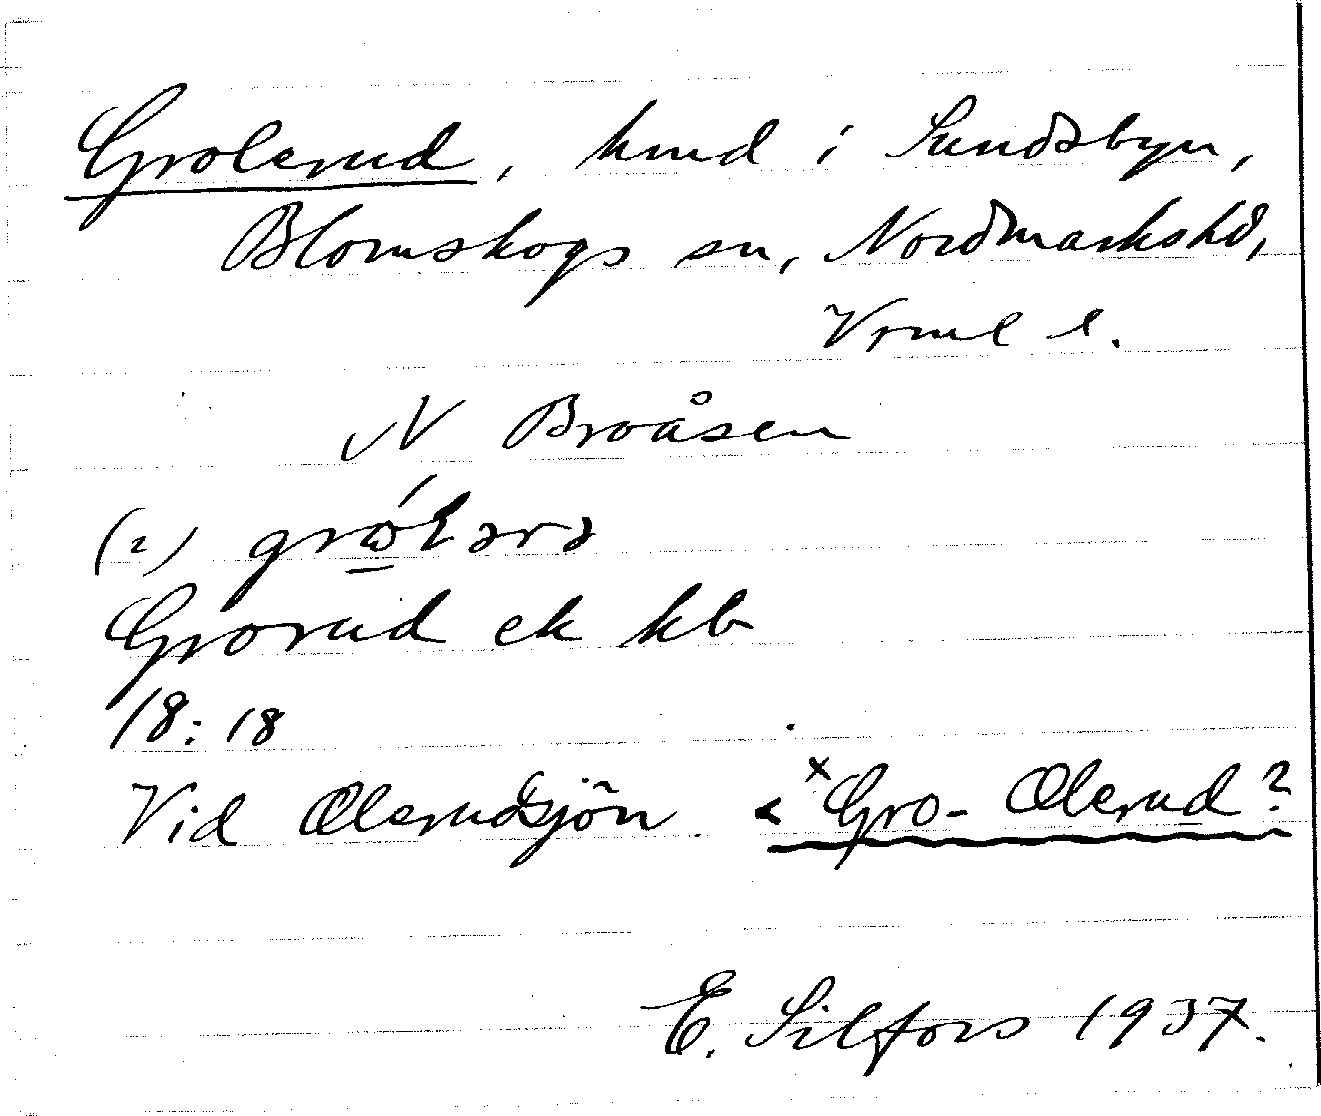 Grolerud, hmd i Sundsbyn,
Blomskogs sn, Nordmarkshd,
Vrml l.
N Broåsen
(2) grώ̲ɫərə
Grorud ek kb
18:18
Vid Olerudsjön. < ×Gro-Olerud?
E. Silfors 1937.